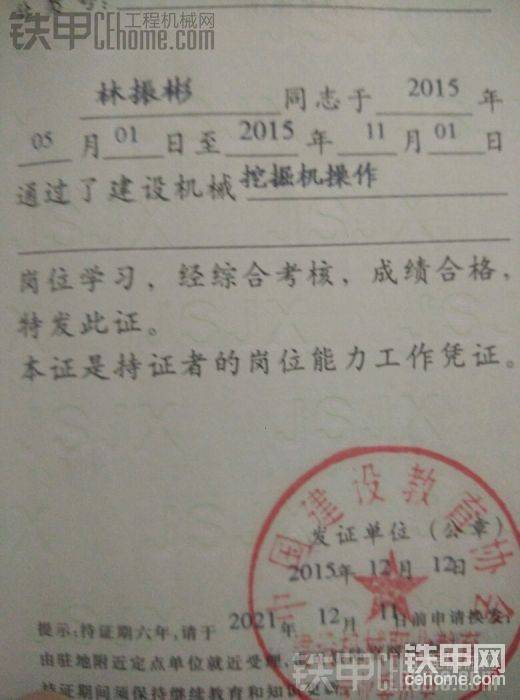 铁甲 工程机械网 cehome.com
林振彬 同志于 2015 年
05 月 01 日至 2015 年 11 月 01 日
通过了建设机械 挖掘机操作
岗位学习，经综合考核，成绩合格，
特发此证。
本证是持证者的岗位能力工作凭证。
中国建设教育协会
发证单位（公章）
2015年 12月 12日
提示：持证期六年，请于 2021年 12月 11日前申请换发，
由驻地附近定点单位就近受理，
持证期间须保持继续教育和知识更
铁甲 工程机械网 cehome.com